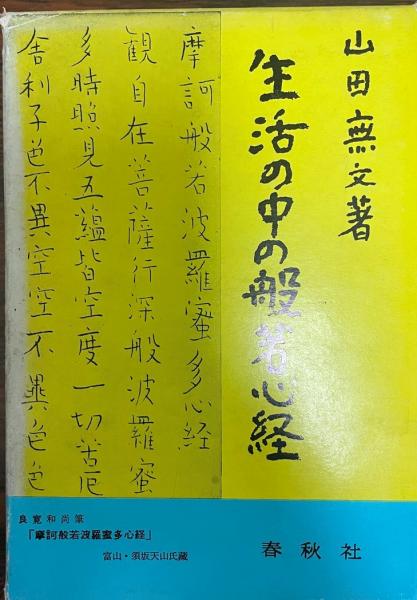 山田無文著
生活の中の般若心経
摩訶般若波羅蜜多心経
観自在菩薩行深般波羅蜜
多時照見五蘊皆空度一切苦厄
舎利子色不異空空不異色色
良寛和尚筆
「摩訶般若波羅蜜多心経」
富山・須坂天山氏蔵
春秋社